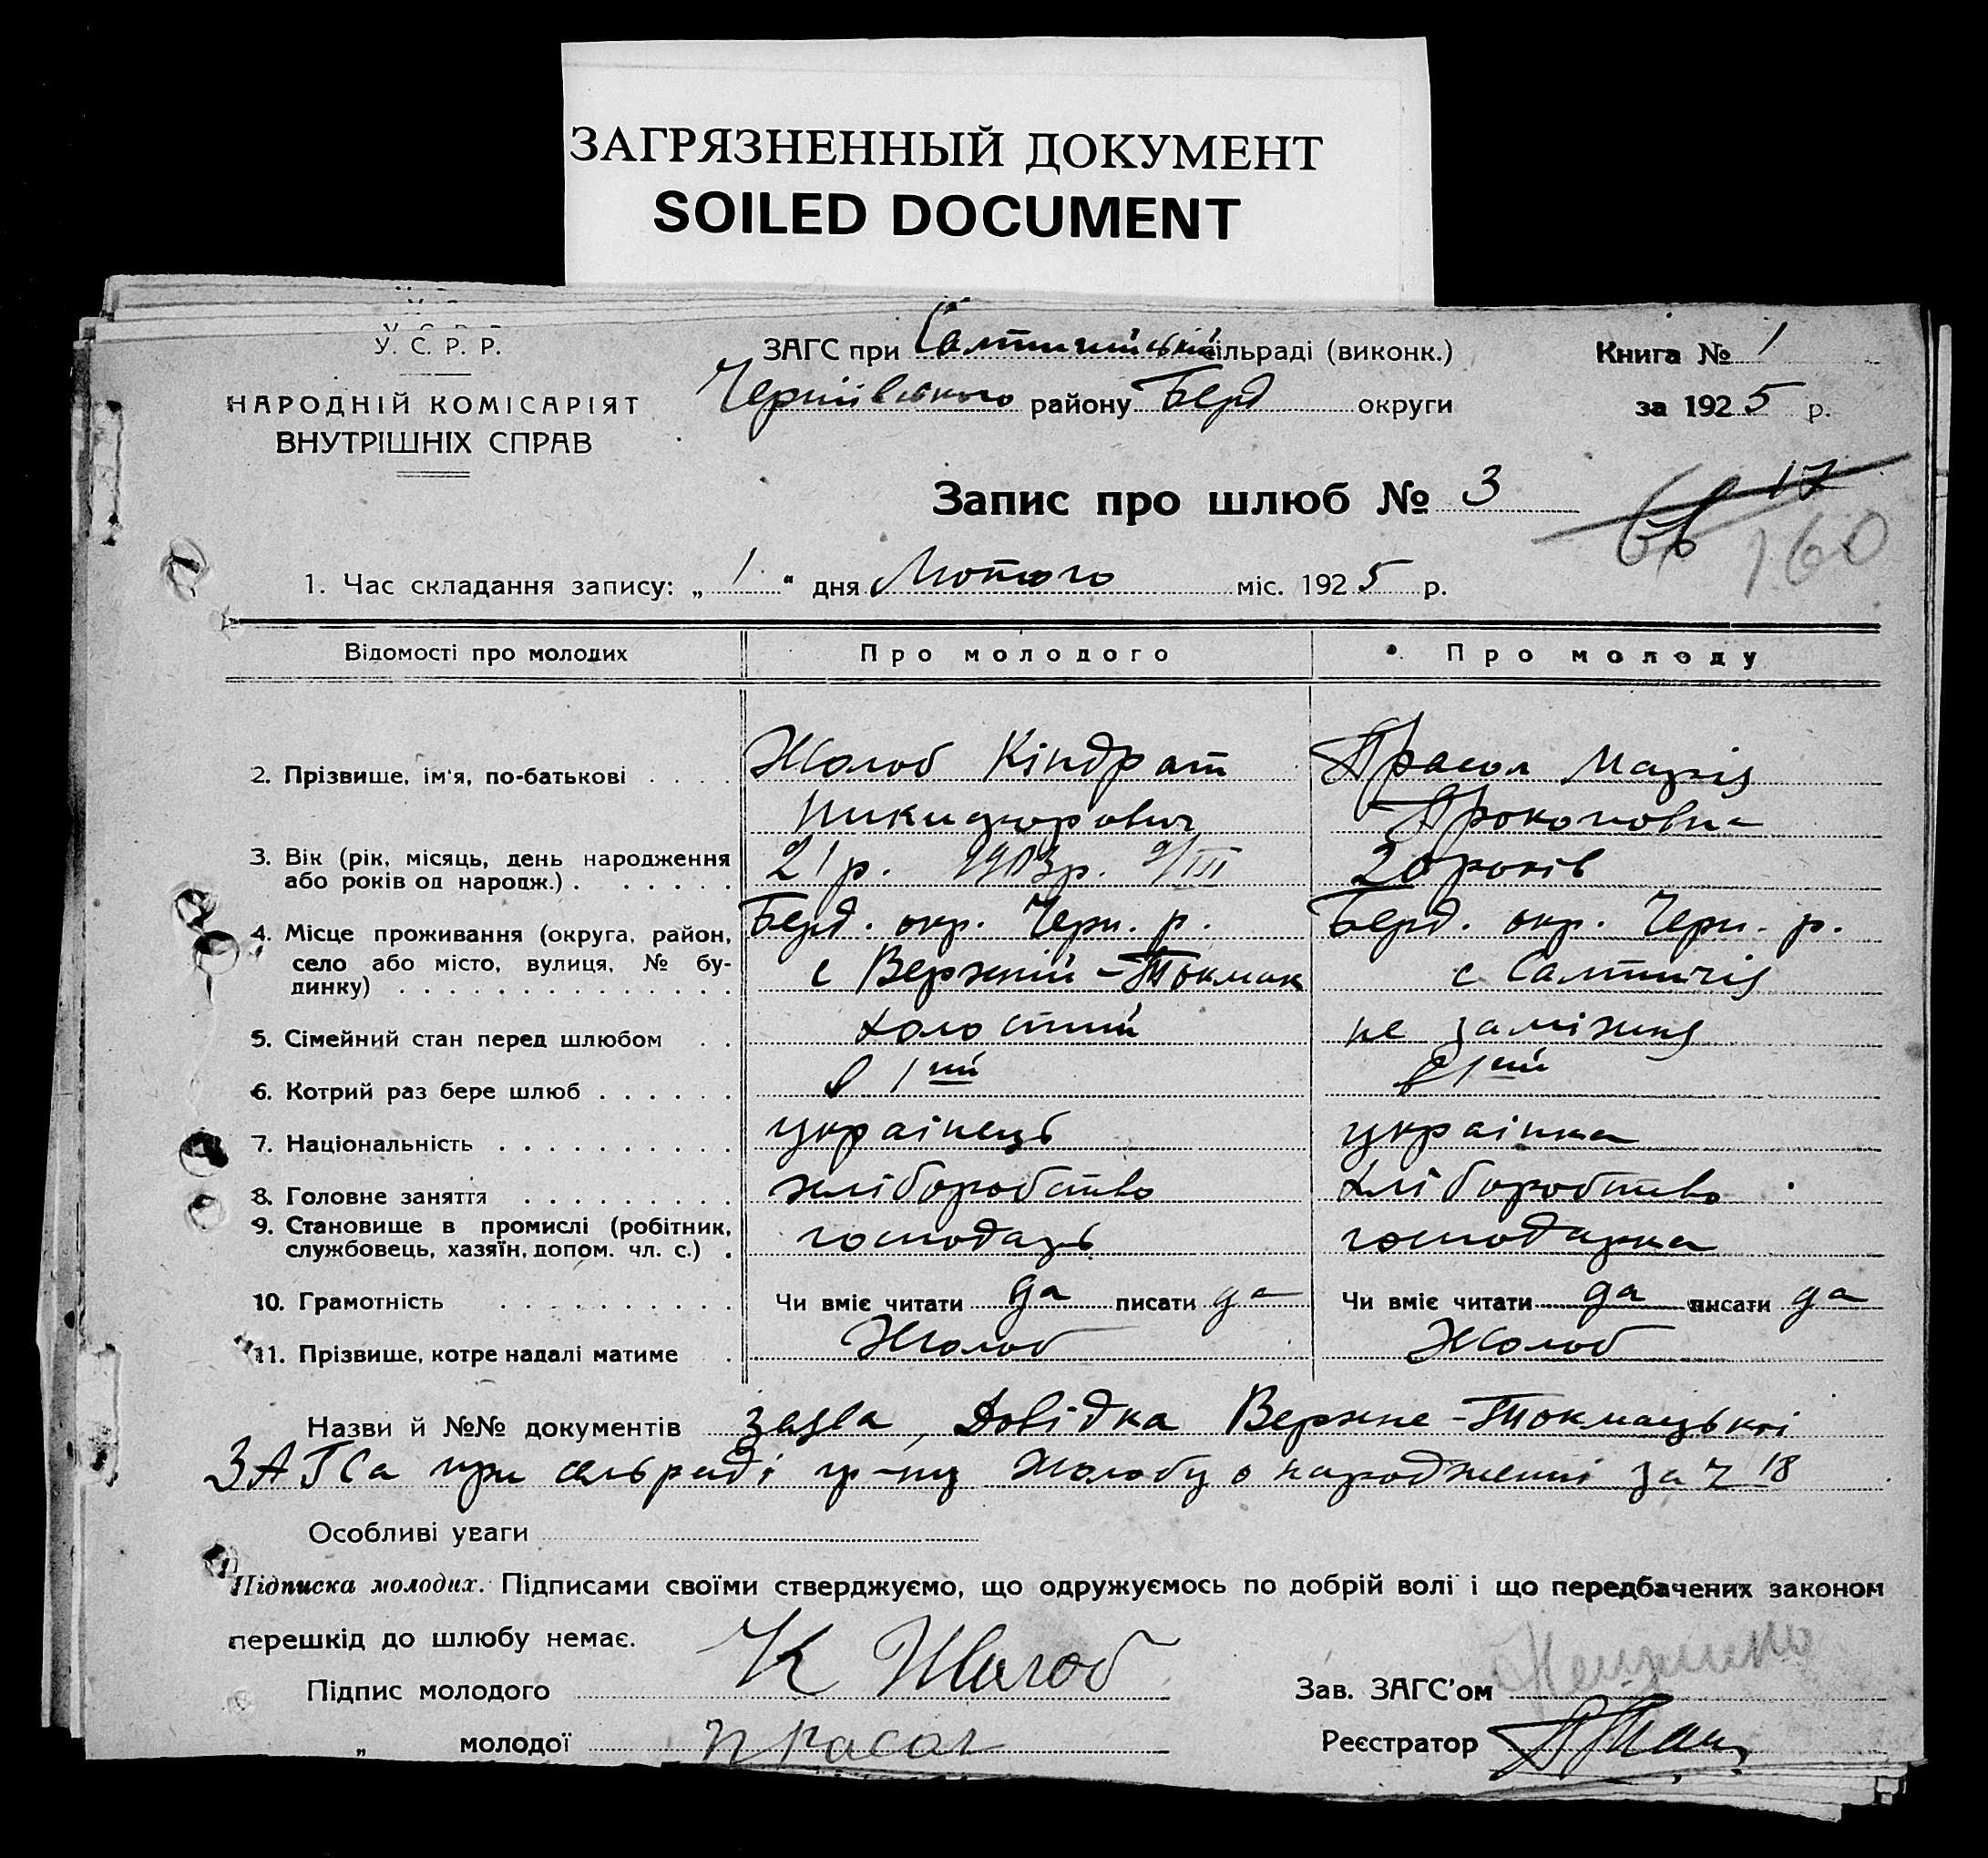 ЗАГРЯЗНЕННЫЙ ДОКУМЕНТ
SOILED DOCUMENT
У. С. Р. Р.
НАРОДНІЙ КОМІСАРІЯТ
ВНУТРІШНІХ СПРАВ
ЗАГС при Салтичийській сільраді (виконк.)
Чернівського району Берд округи
Книга № 1
за 1925 р.
Запис про шлюб № 3
17
160
1. Час складання запису: „ 1 " дня Лютого міс. 1925 р.
Відомості про молодих Про молодого Про молоду
2. Прізвище, ім'я, по-батькові . . . . Жолоб Кіндрат Прасол Марія
Никифорович Прокоповна
3. Вік (рік, місяць, день народження 21 р. 1903 р. 9/III 20 років
або років од народж.) . . . . . .
4. Місце проживання (округа, район, Берд. окр. Черн. р. Берд. окр. Черн. р.
село або місто, вулиця, № бу- с Верхній-Токмак с Салтичія
динку) . . . . . . . . . . . . . . .
5. Сімейний стан перед шлюбом . . холостий не заміжня
6. Котрий раз бере шлюб . . . . . . в 1ий в 1ий
7. Національність . . . . . . . . . . українець українка
8. Головне заняття . . . . . . . . . хліборобство хліборобство
9. Становище в промислі (робітник, господарь господарка
службовець, хазяїн, допом. чл. с.) .
10. Грамотність . . . . . . . . . . Чи вміє читати да писати да Чи вміє читати да писати да
11. Прізвище, котре надалі матиме . Жолоб Жолоб
Назви й №№ документів заява, Довідка Верхне-Токмацької
ЗАГСа при сільраді гр-ну Жолобу о народженні за Ч 18
Особливі уваги
Підписка молодих. Підписами своїми стверджуємо, що одружуємось по добрій волі і що передбачених законом
перешкід до шлюбу немає.
Підпис молодого К Жолоб
Зав. ЗАГС'ом
„ молодої прасол
Реєстратор